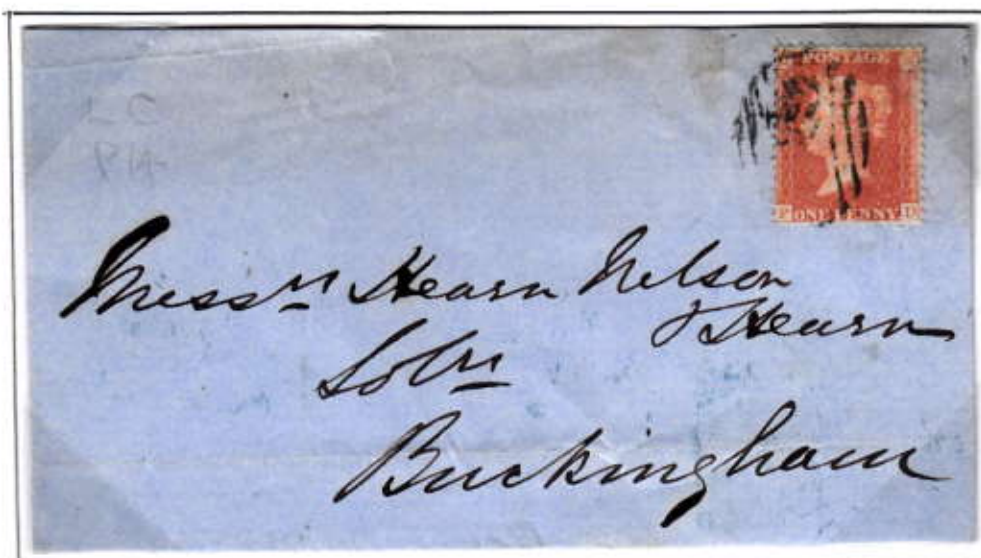 POSTAGE
ONE PENNY
Messrs Hearn Nelson
& Hearn
Solrs
Buckingham